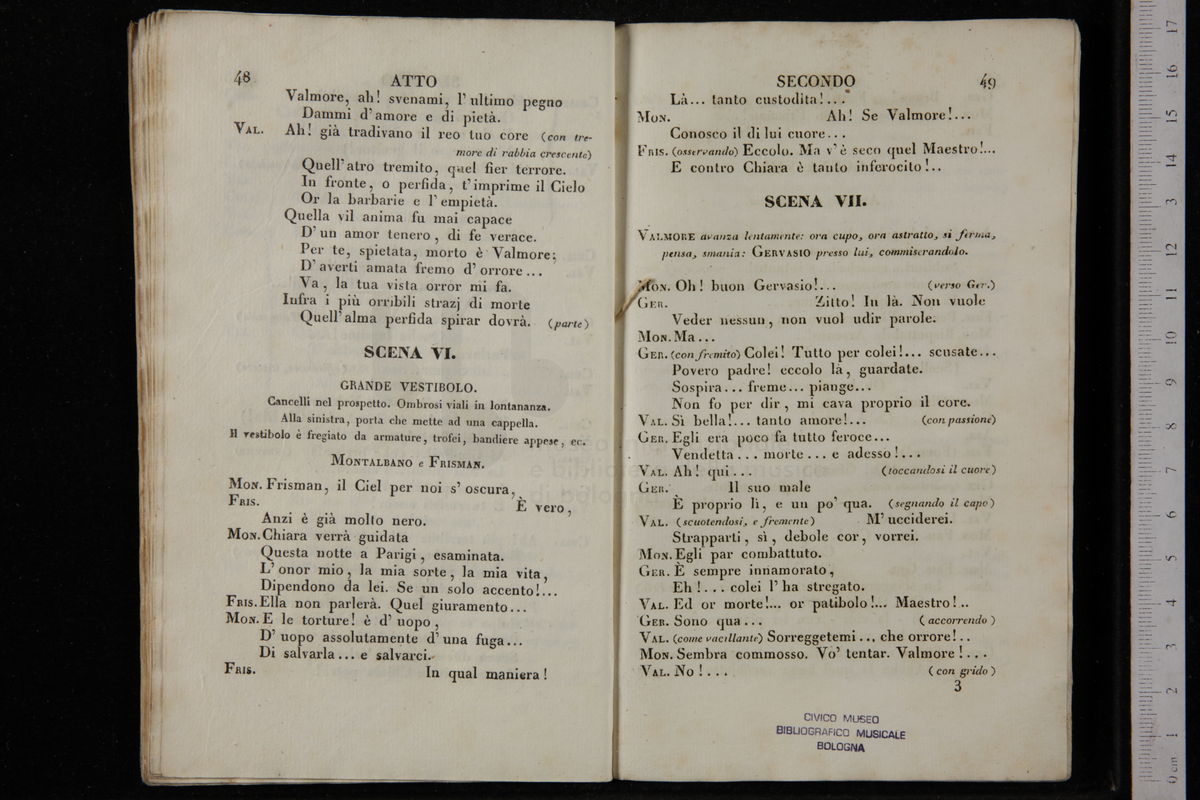 48
ATTO
Valmore, ah! svenami, l'ultimo pegno
Dammi d'amore e di pietà.
VAL. Ah! già tradivano il reo tuo core (con tre-
more di rabbia crescente)
Quell'atro tremito, quel fier terrore.
In fronte, o perfida, t'imprime il Cielo
Or la barbarie e l'empietà.
Quella vil anima fu mai capace
D'un amor tenero, di fe verace.
Per te, spietata, morto è Valmore;
D'averti amata fremo d'orrore...
Va, la tua vista orror mi fa.
Infra i più orribili strazj di morte
Quell'alma perfida spirar dovrà. (parte)
SCENA VI.
GRANDE VESTIBOLO.
Cancelli nel prospetto. Ombrosi viali in lontananza.
Alla sinistra, porta che mette ad una cappella.
Il vestibolo è fregiato da armature, trofei, bandiere appese, ec.
MONTALBANO e FRISMAN.
MON. Frisman, il Ciel per noi s'oscura,
FRIS. È vero,
Anzi è già molto nero.
MON. Chiara verrà guidata
Questa notte a Parigi, esaminata.
L'onor mio, la mia sorte, la mia vita,
Dipendono da lei. Se un solo accento!...
FRIS. Ella non parlerà. Quel giuramento...
MON. E le torture! è d'uopo,
D'uopo assolutamente d'una fuga...
Di salvarla... e salvarci.
FRIS. In qual maniera!
SECONDO
49
Là... tanto custodita!...
MON. Ah! Se Valmore!...
Conosco il di lui cuore...
FRIS. (osservando) Eccolo. Ma v'è seco quel Maestro!...
E contro Chiara è tanto inferocito!..
SCENA VII.
VALMORE avanza lentamente: ora cupo, ora astratto, si ferma,
pensa, smania: GERVASIO presso lui, commiserandolo.
MON. Oh! buon Gervasio!... (verso Ger.)
GER. Zitto! In là. Non vuole
Veder nessun, non vuol udir parole.
MON. Ma...
GER. (con fremito) Colei! Tutto per colei!... scusate...
Povero padre! eccolo là, guardate.
Sospira... freme... piange...
Non fo per dir, mi cava proprio il core.
VAL. Sì bella!... tanto amore!... (con passione)
GER. Egli era poco fa tutto feroce...
Vendetta... morte... e adesso!...
VAL. Ah! qui... (toccandosi il cuore)
GER. Il suo male
È proprio lì, e un po' qua. (segnando il capo)
VAL. (scuotendosi, e fremente) M'ucciderei.
Strapparti, sì, debole cor, vorrei.
MON. Egli par combattuto.
GER. È sempre innamorato,
Eh!... colei l'ha stregato.
VAL. Ed or morte!... or patibolo!... Maestro!..
GER. Sono qua... (accorrendo)
VAL. (come vacillante) Sorreggetemi..., che orrore!..
MON. Sembra commosso. Vo' tentar. Valmore!...
VAL. No!... (con grido)
3
CIVICO MUSEO
BIBLIOGRAFICO MUSICALE
BOLOGNA